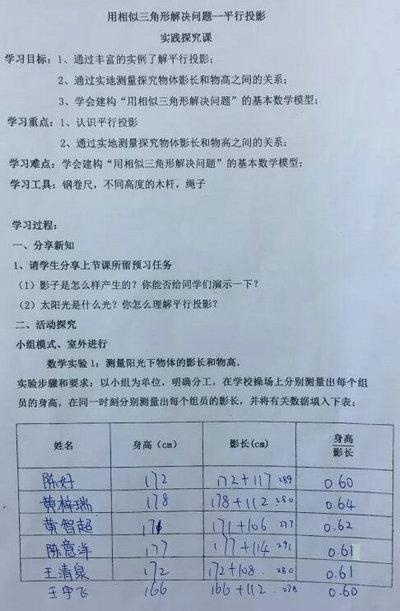 用相似三角形解决问题--平行投影
实践探究课
学习目标：1、通过丰富的实例了解平行投影;
2、通过实地测量探究物体影长和物高之间的关系;
3、学会建构“用相似三角形解决问题”的基本数学模型;
学习重点：1、认识平行投影
2、通过实地测量探究物体影长和物高之间的关系;
学习难点：学会建构“用相似三角形解决问题”的基本数学模型;
学习工具：钢卷尺，不同高度的木杆，绳子
学习过程：
一、分享新知
1、请学生分享上节课所留预习任务
（1）影子是怎么样产生的？你能否给同学们演示一下？
（2）太阳光是什么光？你怎么理解平行投影？
二、活动探究
小组模式、室外进行
数学实验1：测量阳光下物体的影长和物高.
实验步骤和要求：以小组为单位，明确分工，在学校操场上分别测量出每个组
员的身高，在同一时刻分别测量出每个组员的影长，并将有关数据填入下表：
姓名 身高（cm） 影长(cm) 身高/影长
陈好 172 172+117 289 0.60
黄梓瑞 178 178+112 280 0.64
黄智超 171 171+106 277 0.62
陈意洋 177 177+114 291 0.61
王清泉 172 172+108 280 0.61
王宇飞 166 166+112 278 0.60